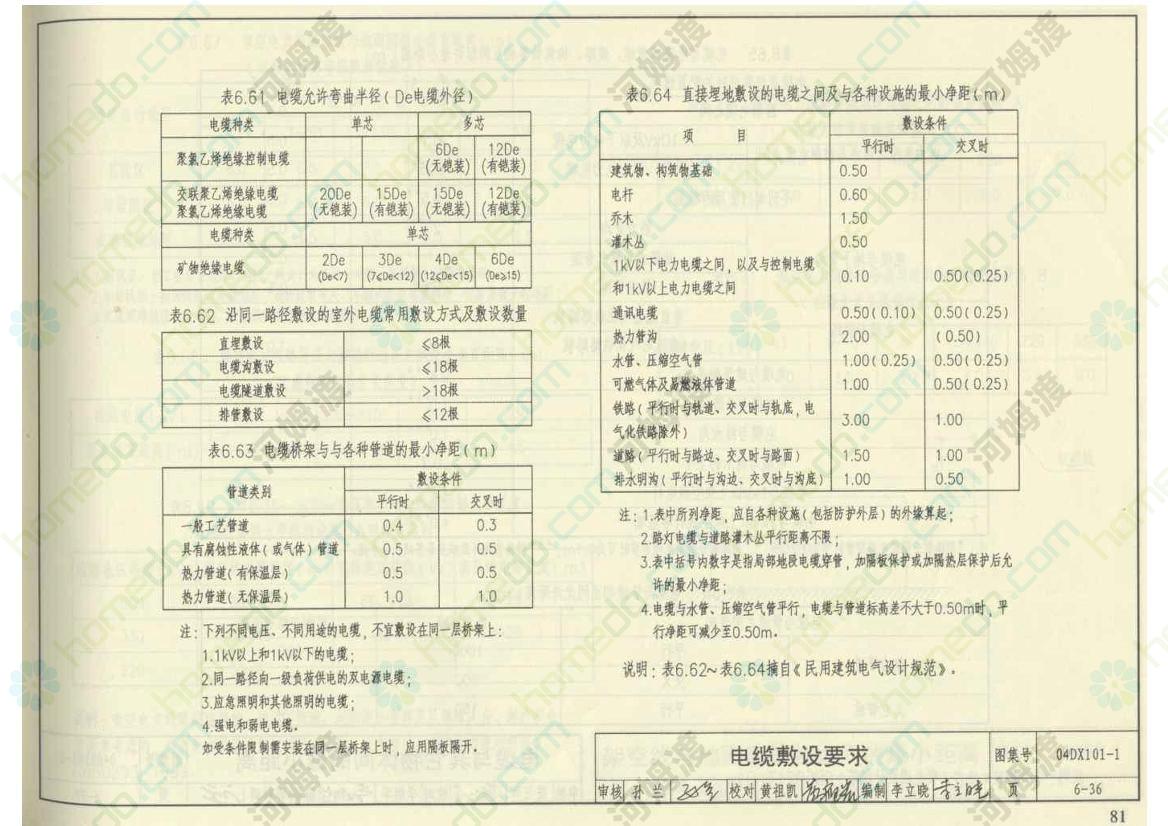 表6.61 电缆允许弯曲半径(De电缆外径)
电缆种类 单芯 多芯
聚氯乙烯绝缘控制电缆 6De (无铠装) 12De (有铠装)
交联聚乙烯绝缘电缆
聚氯乙烯绝缘电缆 20De (无铠装) 15De (有铠装) 15De (无铠装) 12De (有铠装)
电缆种类 单芯
矿物绝缘电缆 2De (De<7) 3De (7≤De<12) 4De (12≤De<15) 6De (De≥15)
表6.62 沿同一路径敷设的室外电缆常用敷设方式及敷设数量
直埋敷设 ≤8根
电缆沟敷设 ≤18根
电缆隧道敷设 >18根
排管敷设 ≤12根
表6.63 电缆桥架与与各种管道的最小净距(m)
管道类别 敷设条件
平行时 交叉时
一般工艺管道 0.4 0.3
具有腐蚀性液体(或气体)管道 0.5 0.5
热力管道(有保温层) 0.5 0.5
热力管道(无保温层) 1.0 1.0
注:下列不同电压、不同用途的电缆,不宜敷设在同一层桥架上:
1.1kV以上和1kV以下的电缆;
2.同一路径向一级负荷供电的双电源电缆;
3.应急照明和其他照明的电缆;
4.强电和弱电电缆。
如受条件限制需安装在同一层桥架上时,应用隔板隔开。
表6.64 直接埋地敷设的电缆之间及与各种设施的最小净距(m)
项 目 敷设条件
平行时 交叉时
建筑物、构筑物基础 0.50
电杆 0.60
乔木 1.50
灌木丛 0.50
1kV以下电力电缆之间,以及与控制电缆
和1kV以上电力电缆之间 0.10 0.50(0.25)
通讯电缆 0.50(0.10) 0.50(0.25)
热力管沟 2.00 (0.50)
水管、压缩空气管 1.00(0.25) 0.50(0.25)
可燃气体及易燃液体管道 1.00 0.50(0.25)
铁路(平行时与轨道、交叉时与轨底,电
气化铁路除外) 3.00 1.00
道路(平行时与路边、交叉时与路面) 1.50 1.00
排水明沟(平行时与沟边、交叉时与沟底) 1.00 0.50
注:1.表中所列净距,应自各种设施(包括防护外层)的外缘算起;
2.路灯电缆与道路灌木丛平行距离不限;
3.表中括号内数字是指局部地段电缆穿管,加隔板保护或加隔热层保护后允
许的最小净距;
4.电缆与水管、压缩空气管平行,电缆与管道标高差不大于0.50m时,平
行净距可减少至0.50m。
说明:表6.62~表6.64摘自《民用建筑电气设计规范》。
电缆敷设要求 图集号 04DX101-1
审核 孙兰 校对 黄祖凯 编制 李立晓 李立晓 页 6-36
81
河姆渡
homedo.com